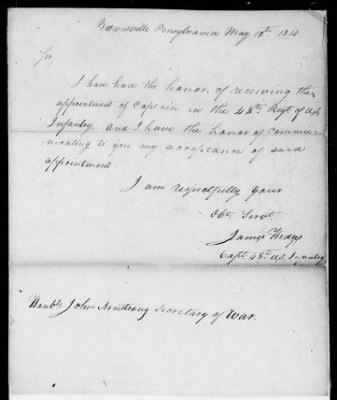 Brownsville Pensylvania May 18th 1814
Sir,
I have had the honor of receiving the
appointment of Captain in the 48th Regt of U,S,
Infantry. And I have the honor of commu-
nicating to you my acceptance of said
appointment.
I am respectfully your
Obt. Servt.
James Hedges
Capt. 48th U.S. Infantry
Honble John Armstrong Secretary of War.